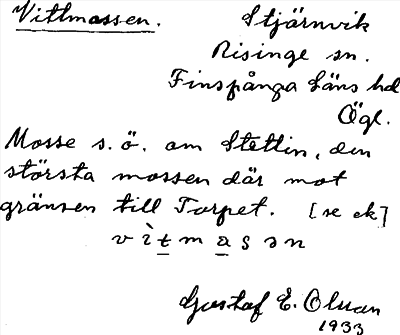 Vittmossen. Stjärnvik
Risinge sn.
Finspånga läns hd
Ögl.
Mosse s.ö. om Stettin, den
största mossen där mot
gränsen till Torpet. [se ek]
v ì t m a s ə n
Gustaf E. Olsson
1933